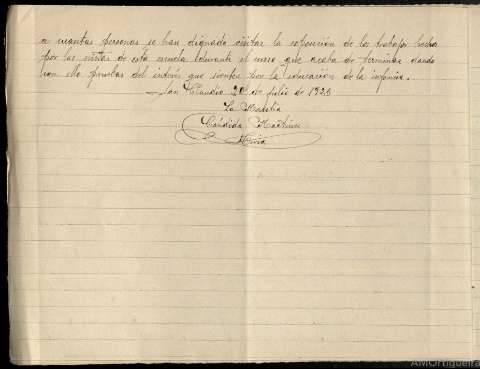 a cuantas personas se han dignado visitar la exposición de los trabajos hechos
por las niñas de esta escuela durante el curso que acaba de terminar dando
con ello pruebas del interés que sienten por la educación de la infancia.
San Claudio 20 de Julio de 1923
La Maestra
Cándida Martínez
AMOrtigueira